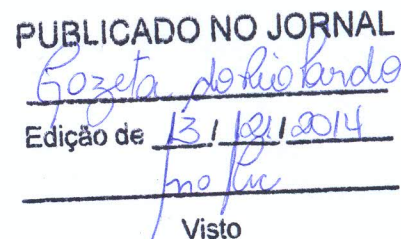 PUBLICADO NO JORNAL
Gazeta do Rio Pardo
Edição de 13 / 12 / 2014
Visto